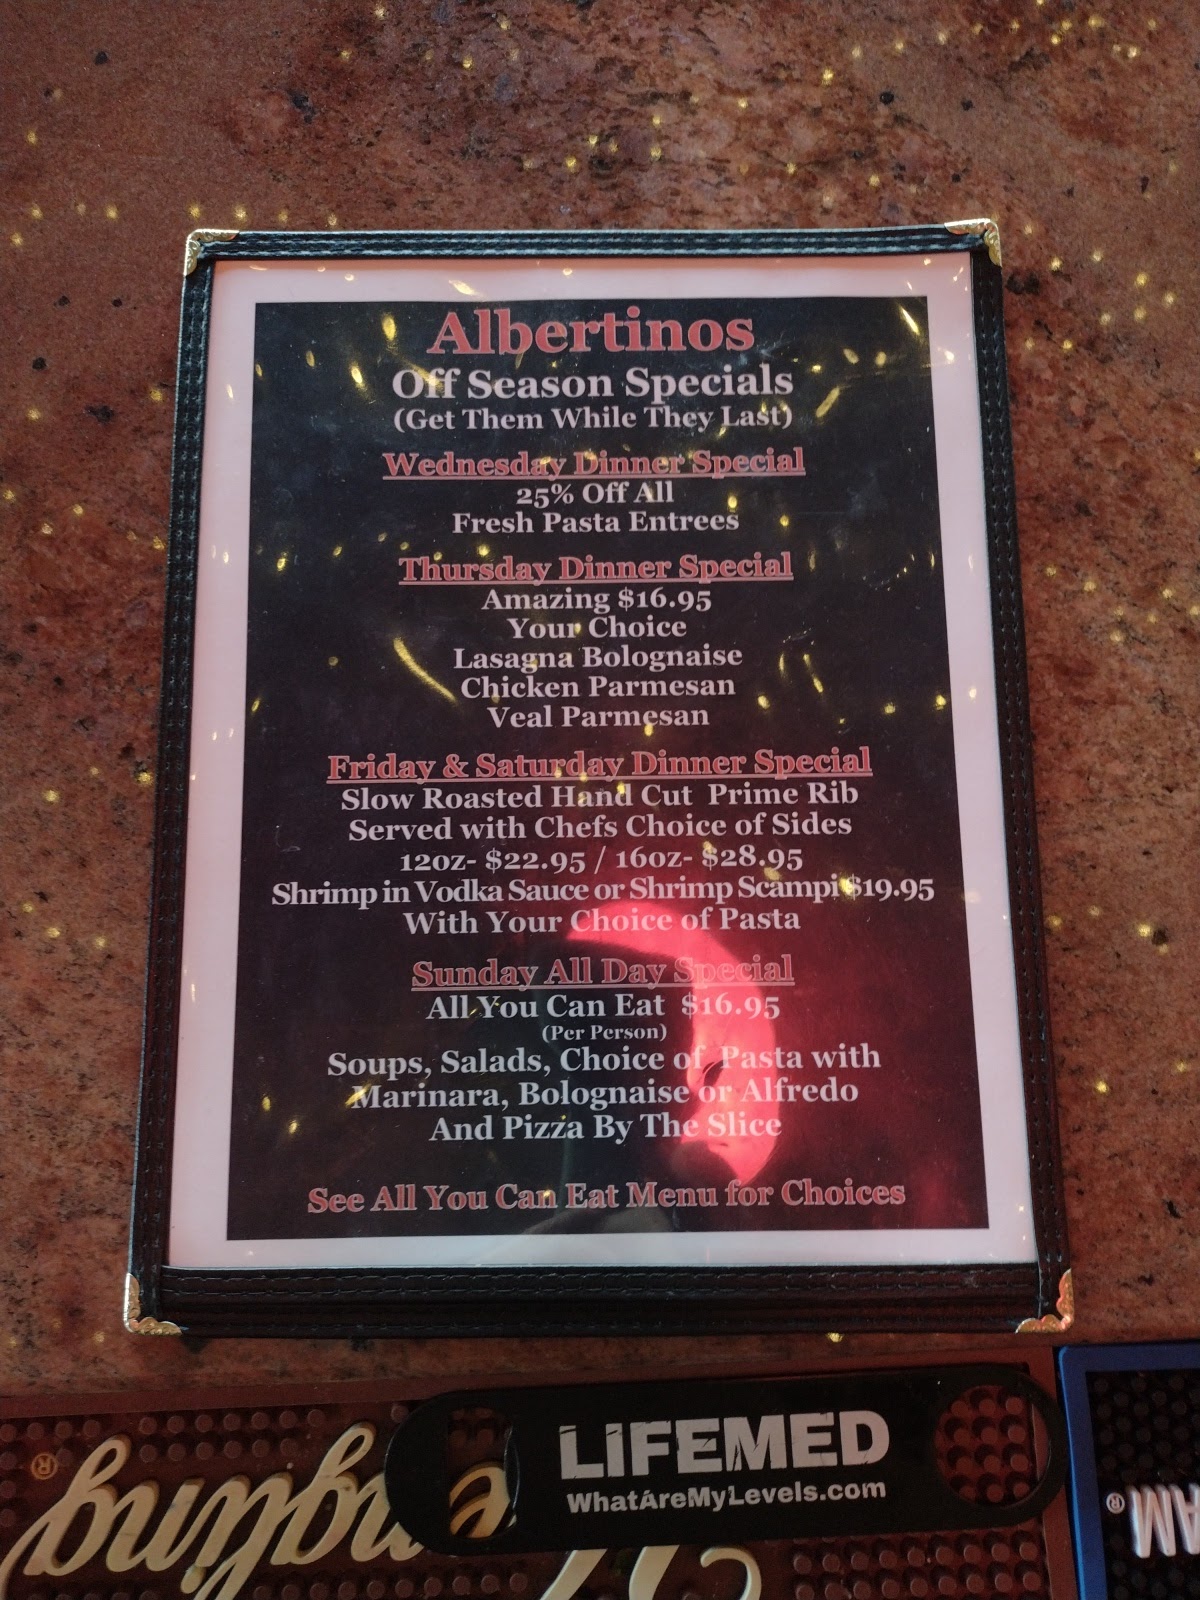 Albertinos
Off Season Specials
(Get Them While They Last)
Wednesday Dinner Special
25% Off All
Fresh Pasta Entrees
Thursday Dinner Special
Amazing $16.95
Your Choice
Lasagna Bolognaise
Chicken Parmesan
Veal Parmesan
Friday & Saturday Dinner Special
Slow Roasted Hand Cut Prime Rib
Served with Chefs Choice of Sides
12oz- $22.95 / 16oz- $28.95
Shrimp in Vodka Sauce or Shrimp Scampi $19.95
With Your Choice of Pasta
Sunday All Day Special
All You Can Eat $16.95
(Per Person)
Soups, Salads, Choice of Pasta with
Marinara, Bolognaise or Alfredo
And Pizza By The Slice
See All You Can Eat Menu for Choices
LIFEMED
WhatAreMyLevels.com